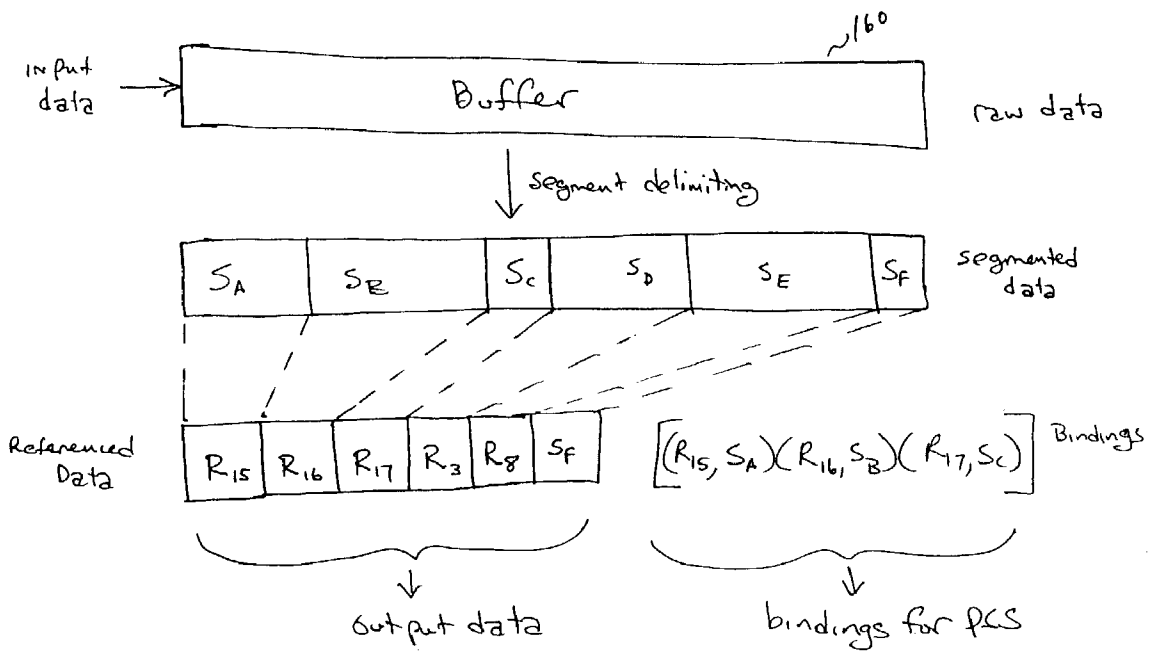 160
Input
data
Buffer
raw data
segment delimiting
S_A S_B S_C S_D S_E S_F
segmented
data
Referenced
Data
R_15 R_16 R_17 R_3 R_8 S_F
[(R_15, S_A)(R_16, S_B)(R_17, S_C)]
Bindings
output data
bindings for PCS